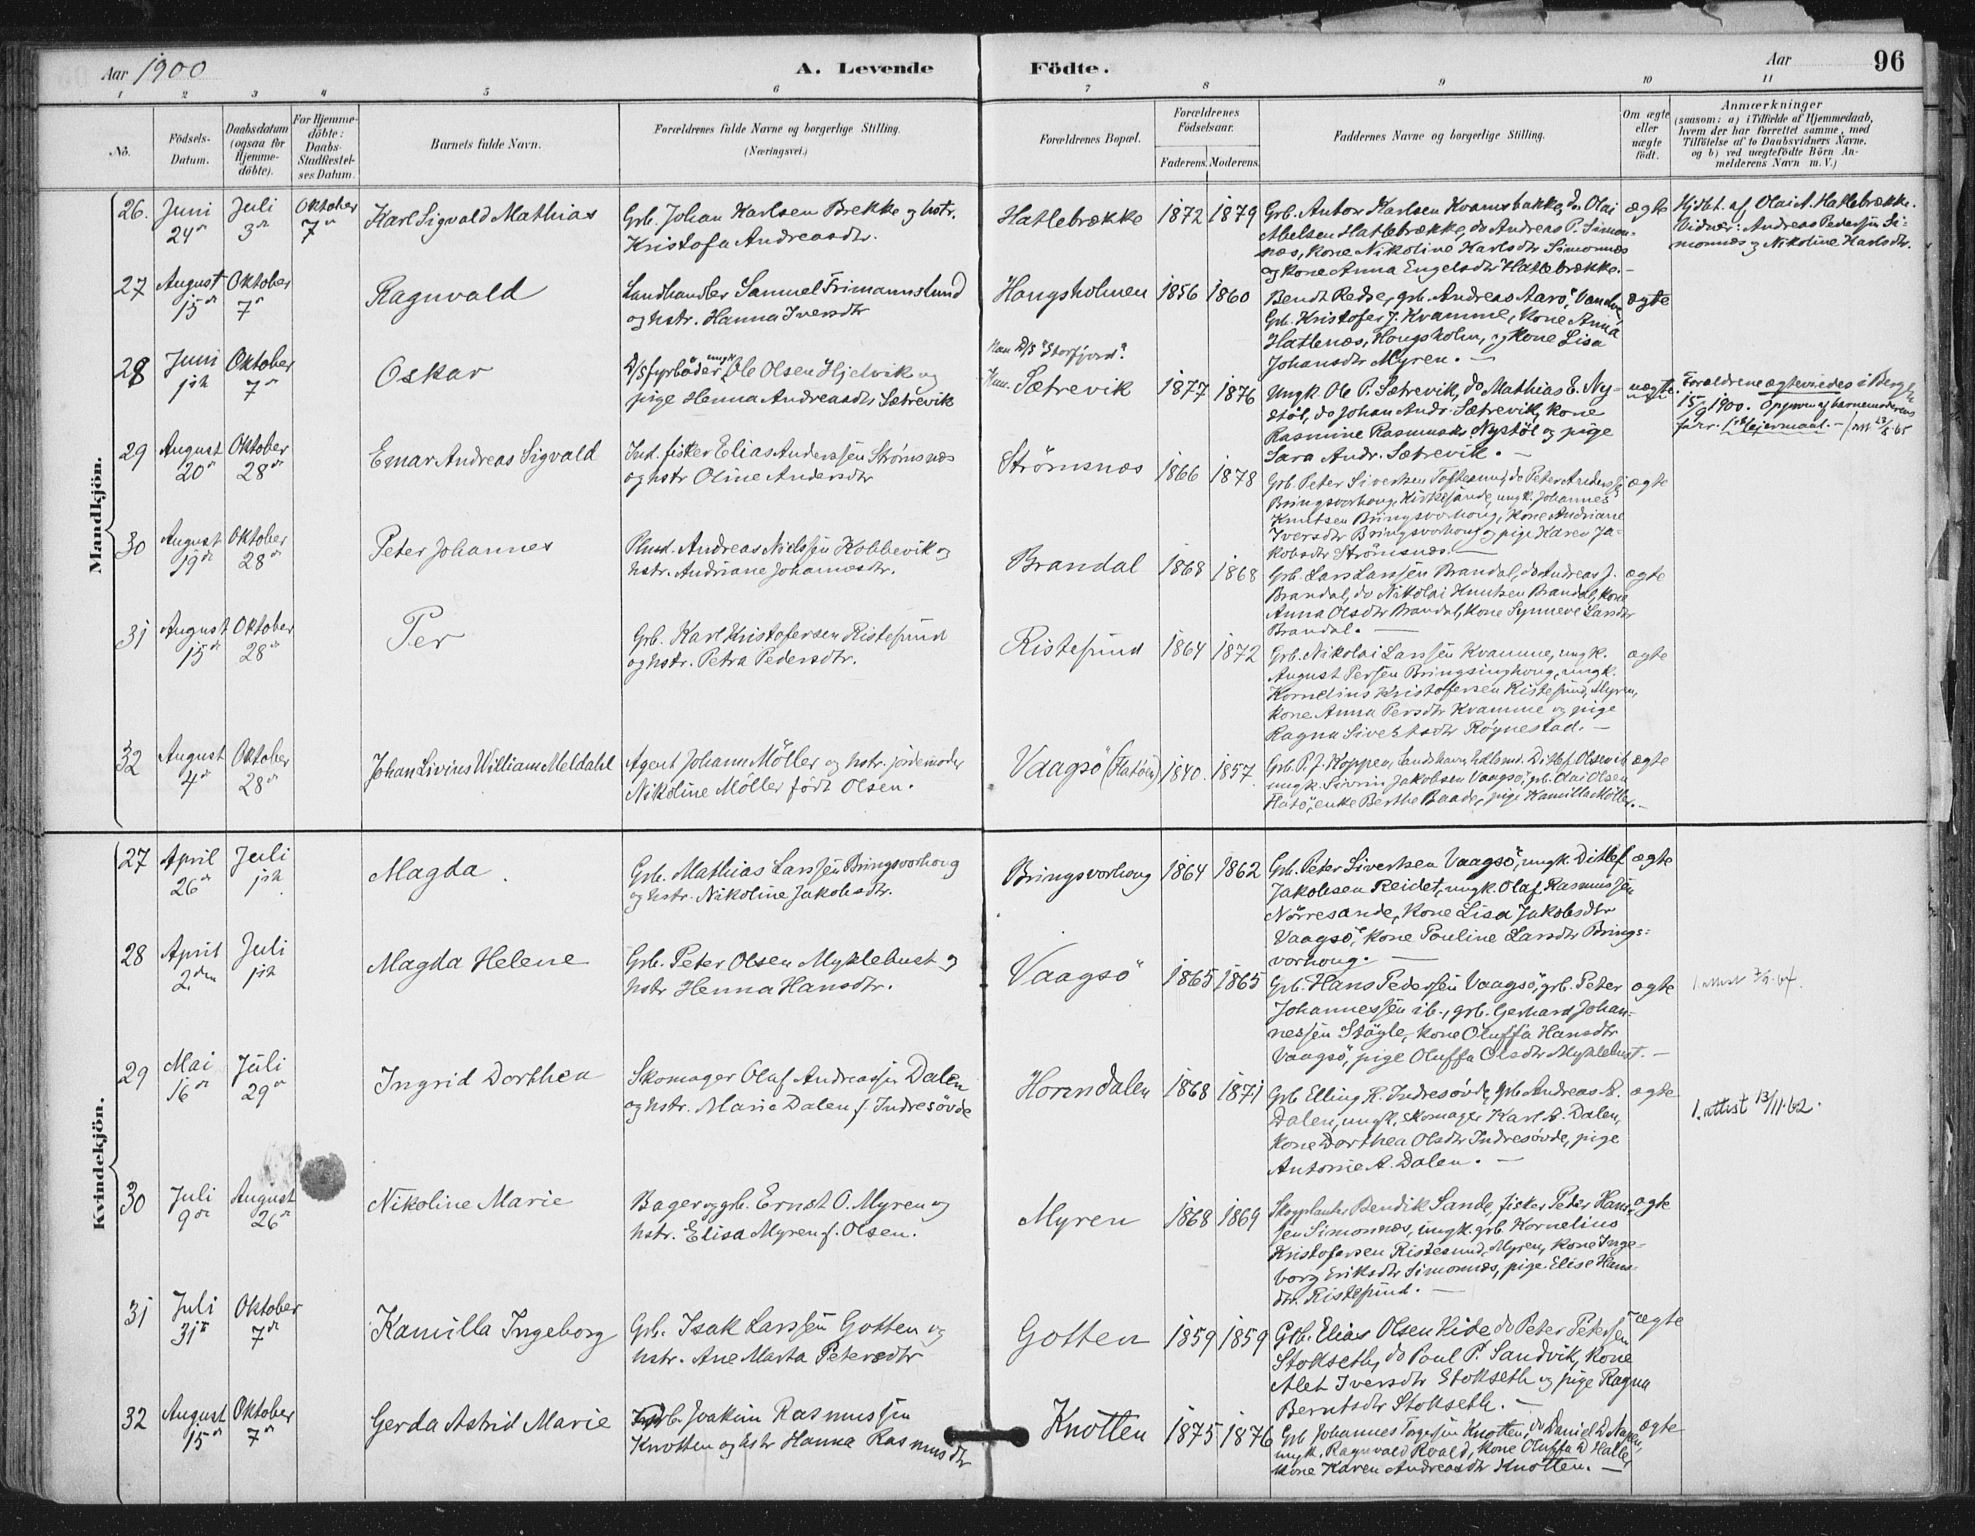 Aar 1900
A. Levende Födte.
Aar
96
1 2 3 4 5 6 7 8 9 10 11
No.
Födsels-Datum.
Daabsdatum (ogsaa for Hjemme-döbte).
For Hjemme-döbte: Daabs-Stadfæstel-ses Datum.
Barnets fulde Navn.
Forældrenes fulde Navne og borgerlige Stilling.
(Næringsvei.)
Forældrenes Bopæl.
Forældrenes Födselsaar.
Faderens. Moderens.
Faddernes Navne og borgerlige Stilling.
Om ægte eller uægte födt.
Anmærkninger
(saasom: a) i Tilfælde af Hjemmedaab,
hvem der har forrettet samme, med
Tilföielse af to Daabsvidners Navne,
og b) ved uægtefödte Börn An-
melderens Navn m. V.)
Mandkjön.
26. Juni 24de Juli 3de Oktober 7de
Karl Sigvald Mathias
Grb. Johan Karlsen Brekke og hstr.
Kristofa Andreasdtr.
Hatlebrække 1872 1879
Grb. Anton Karlsen Kvamsbakke, do Olai
Abelsen Hatlebrække, do Andreas P. Simon-
næs, Kone Nikoline Karlsdtr Simonnæs
og Kone Anna Engelsdtr Hatlebrække. —
ægte
Hjdbt. af Olai A. Hatlebrække.
Vidner: Andreas Pedersen Si-
monnæs og Nikoline Karlsdtr.
27 August 15de Oktober 7de
Ragnvald
Landhandler Samuel Frimannslund
og hstr. Hanna Iversdtr
Hougsholmen 1856 1860
Bendt Redse, grb. Andreas Aarö, Vandve
Grb. Kristofer J. Kvamme, Kone Anna
Hatlenæs, Hougsholm, og Kone Lisa
Johansdtr Myren. —
ægte
28 Juni 1ste Oktober 7de
Oskar
D/S fyrböder ungk. Ole Olsen Hjelvik og
pige Henna Andreasdtr Sætrevik
Han D/S "Storfjord".
Hun. Sætrevik 1877 1876
Ungk. Ole P. Sætrevik, do Mathias E. Ny-
stöl, do Johan Andr. Sætrevik, Kone
Rasmine Rasmusdtr Nystöl og pige
Sara Andr. Sætrevik. —
uægte.
Forældrene ægteviedes i Bergen
15/9 1900. Opgiven af barnemoderens
far. 1ste Leiermaal. —
29 August 20de Oktober 28de
Emar Andreas Sigvald
Ind. fisker Elias Anderssen Strömsnæs
og hstr Oline Andersdtr
Strömsnæs 1866 1878
Grb. Peter Sivertsen Toftesund, do Peter Anderssen
Bringsvorhoug, Kirkesande, ungk. Johannes
Knutsen Bringsvorhoug, Kone Andriane
Iversdtr Bringsvorhoug og pige Karen Ja-
kobsdtr Strömsnæs. —
ægte
30 August 19de Oktober 28de
Peter Johannes
Plmd. Andreas Nielssen Kobbevik og
hstr. Andriane Johannesdtr.
Brandal 1868 1868
Grb. Lars Larssen Brandal, do Andreas J.
Brandal, do Nikolai Knutsen Brandal, Kone
Anna Olsdtr Brandal, Kone Synneve Larsdtr
Brandal. —
ægte
31 August 15de Oktober 28de
Per
Grb. Karl Kristofersen Ristesund
og hstr. Petra Pedersdtr.
Ristesund 1864 1872
Grb. Nikolai Larssen Kvamme, ungk.
August Perssen Bringsinghoug, ungk.
Kornelius Kristoffersen Ristesund, Myren,
Kone Anna Persdtr Kvamme og pige
Ragna Sivertsdtr Røgnestad. —
ægte
32 August 4de Oktober 28de
Johan Livius William Meldahl
Agent Johann Möller og hstr. jordemoder
Nikoline Möller födt Olsen.
Vaagsö (Flatöen) 1840. 1857.
Grb. P. J. Koppen, Sandshavn, Ditlef Olsevik
ungk. Sivrin Jakobsen Vaagsö, grb. Olai Olsen
Flatö, enke Berthe Baade, pige Kamilla Möller. —
ægte
Kvindekjön.
27 April 26de Juli 1ste
Magda.
Grb. Mathias Larssen Bringsvorhoug
og hstr. Nikoline Jakobsdtr.
Bringsvorhoug 1864 1862
Grb. Peter Sivertsen Vaagsö, ungk. Ditlef
Jakobsen Reidet, ungk. Olaf Rasmussen
Nörresande, Kone Lisa Jakobsdtr
Vaagsö, Kone Pauline Larsdtr Brings-
vorhoug. —
ægte
28 April 2den Juli 1ste
Magda Helene
Grb. Peter Olsen Myklebust og
hstr Henna Hansdtr.
Vaagsö 1865 1865
Grb. Hans Pederssen Vaagsö, grb. Peter
Johannessen ib., grb. Gerhard Johan-
nessen Stöyle, Kone Oluffa Hansdtr
Vaagsö, pige Oluffa Olsdtr Myklebust. —
ægte
29 Mai 16de Juli 29de
Ingrid Dorthea
Skomager Olaf Andreassen Dalen
og hstr. Marie Dalen f. Indresövde
Horendalen 1868 1871
Grb Elling R. Indresövde, Grb Andreas A.
Dalen, ungk. skomager Karl A. Dalen,
Kone Dorthea Olsdtr Indresövde, pige
Antonie A. Dalen. —
ægte
1. attest 13/11-62.
30 Juli 9de August 26de
Nikoline Marie
Bager og grb. Ernst O. Myren og
hstr. Elisa Myren f. Olsen.
Myren 1868 1869
Skogplanter Bendik Sande, fisker Peder Hans-
sen Simonnæs, ungk. grb. Kornelius
Kristofersen Ristesund, Myren, Kone Inge-
borg Eriksdtr Simonnæs, pige Elise Hans-
dtr. Ristesund. —
ægte
31 Juli 31te Oktober 7de
Kamilla Ingeborg
Grb. Isak Larssen Gotten og
hstr. Ane Marta Petersdtr
Gotten 1859 1859
Grb. Elias Olsen Eide do Peter Peterssen
Stokseth, do Poul P. Sandvik, Kone
Alet Iversdtr Stokseth og pige Ragna
Berntsdtr Stokseth. —
ægte
32 August 15de Oktober 7de
Gerda Astrid Marie
Grb. Joakim Rasmussen
Knotten og hstr Hanna Rasmusdtr
Knotten 1875 1876
Grb Johannes Torgersen Knotten, do Daniel D.
ungk. Ragnvald Roald, Kone Oluffa D Halle,
Kone Karen Andreasdtr Knotten. —
ægte